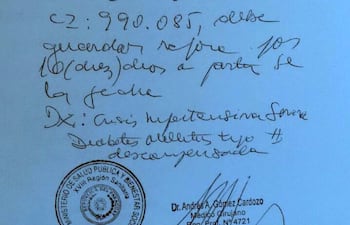 CI: 990.085, debe
guardar reposo por
10 (diez) dias a partir de
la fecha
Dx: Crisis Hipertensiva Severa
Diabetes Mellitus tipo II
descompensada
MINISTERIO DE SALUD PUBLICA Y BIENESTAR SOC
XVIII Región Sanitaria
Dr. Andrés A. Gómez Cardozo
Médico Cirujano
Reg. Prof. Nº 4721